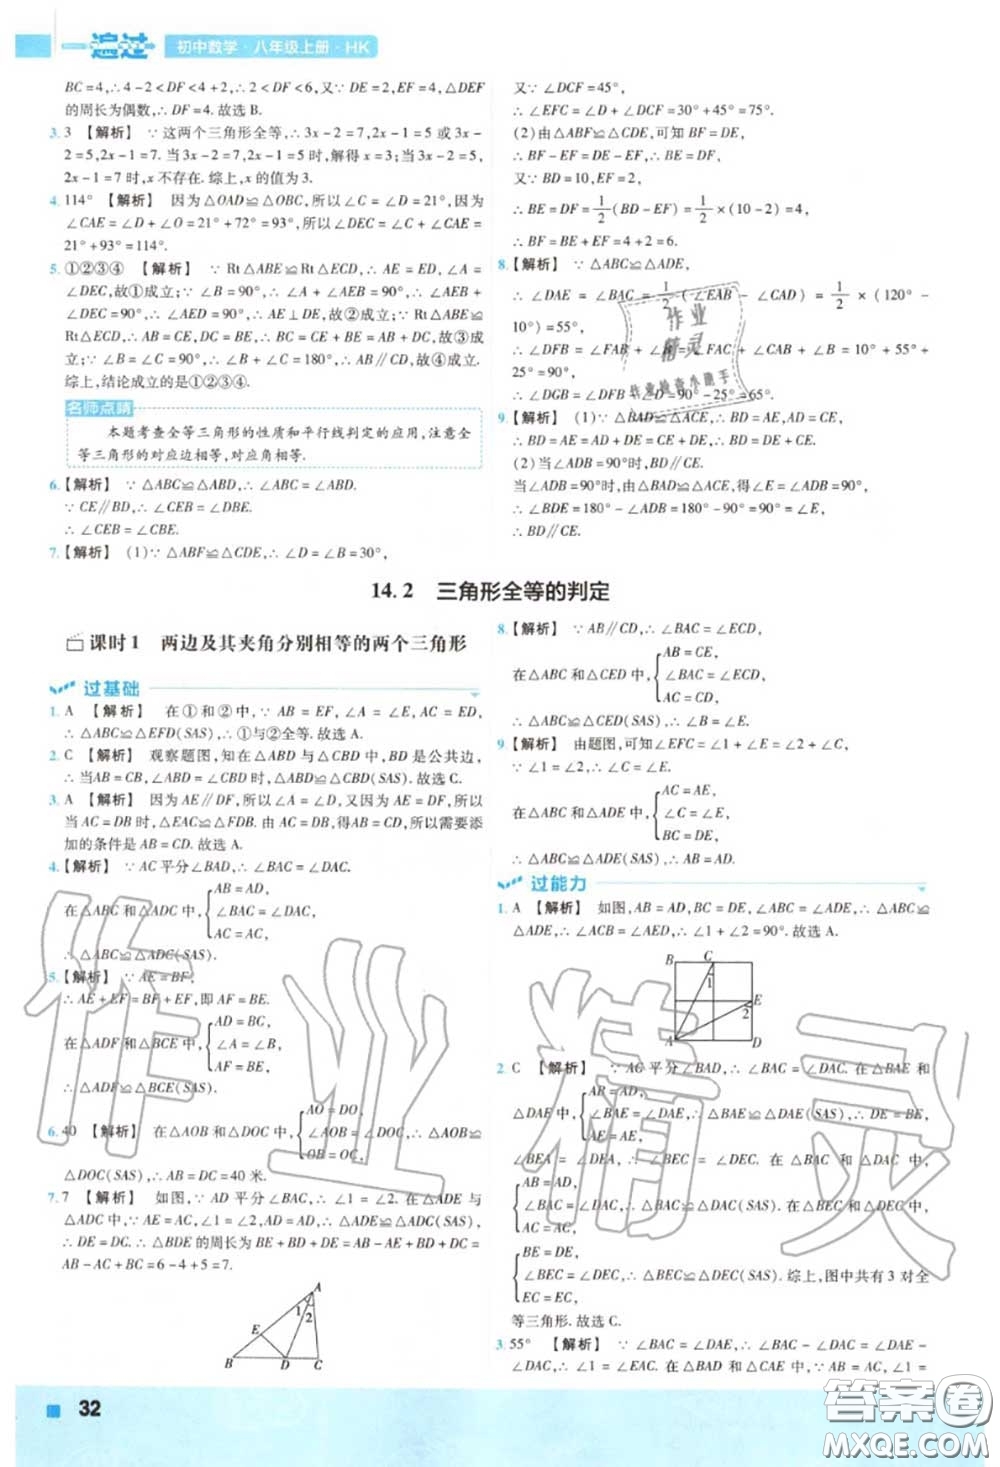 一遍过 初中数学·八年级上册·HK
BC=4,∴4-2<DF<4+2,∴2<DF<6,又∵DE=2,EF=4,△DEF
的周长为偶数,∴DF=4.故选B.
3. 3 【解析】 ∵这两个三角形全等,∴3x-2=7,2x-1=5或3x-
2=5,2x-1=7.当3x-2=7,2x-1=5时,解得x=3;当3x-2=5,
2x-1=7时,x不存在.综上,x的值为3.
4. 114° 【解析】 因为△OAD≌△OBC,所以∠C=∠D=21°,又因为
∠CAE=∠D+∠O=21°+72°=93°,所以∠DEC=∠C+∠CAE=
21°+93°=114°.
5. ①②③④ 【解析】 ∵Rt△ABE≌Rt△ECD,∴AE=ED,∠A=
∠DEC,故①成立;∵∠B=90°,∴∠A+∠AEB=90°,∴∠AEB+
∠DEC=90°,∴∠AED=90°,∴AE⊥DE,故②成立;∵Rt△ABE≌
Rt△ECD,∴AB=EC,DC=BE,∴BC=CE+BE=AB+DC,故③成
立;∵∠B=90°,∠C=90°,∴∠B+∠C=180°,∴AB∥CD,故④成立.
综上,结论成立的是①②③④.
名师点睛
本题考查全等三角形的性质和平行线判定的应用,注意全
等三角形的对应边相等,对应角相等.
6.【解析】 ∵△ABC≌△ABD,∴∠ABC=∠ABD.
∵CE∥BD,∴∠CEB=∠DBE.
∴∠CEB=∠CBE.
7.【解析】 (1)∵△ABF≌△CDE,∴∠D=∠B=30°,
又∵∠DCF=45°,
∴∠EFC=∠D+∠DCF=30°+45°=75°.
(2)由△ABF≌△CDE,可知BF=DE,
∴BF-EF=DE-EF,∴BE=DF,
又∵BD=10,EF=2,
∴BE=DF=1/2(BD-EF)=1/2×(10-2)=4,
∴BF=BE+EF=4+2=6.
8.【解析】 ∵△ABC≌△ADE,
∴∠DAE=∠BAC=1/2(∠EAB-∠CAD)=1/2×(120°-
10°)=55°,
∴∠DFB=∠FAB+∠B=∠FAC+∠CAB+∠B=10°+55°+
25°=90°,
∴∠DGB=∠DFB-∠D=90°-25°=65°.
9.【解析】 (1)∵△BAD≌△ACE,∴BD=AE,AD=CE,
∴BD=AE=AD+DE=CE+DE,∴BD=CE+DE.
(2)当∠ADB=90°时,BD∥CE.
当∠ADB=90°时,由△BAD≌△ACE,得∠E=∠ADB=90°,
∴∠BDE=180°-∠ADB=180°-90°=90°=∠E,
∴BD∥CE.
14.2 三角形全等的判定
课时1 两边及其夹角分别相等的两个三角形
过基础
1. A 【解析】 在①和②中,∵AB=EF,∠A=∠E,AC=ED,
∴△ABC≌△EFD(SAS),∴①与②全等.故选A.
2. C 【解析】 观察题图,知在△ABD与△CBD中,BD是公共边,
∴当AB=CB,∠ABD=∠CBD时,△ABD≌△CBD.故选C.
3. A 【解析】 因为AE∥DF,所以∠A=∠D,又因为AE=DF,所以
当AC=DB时,△EAC≌△FDB.由AC=DB,得AB=CD,所以需要添
加的条件是AB=CD.故选A.
4.【解析】 ∵AC平分∠BAD,∴∠BAC=∠DAC.
AB=AD,
在△ABC和△ADC中,∠BAC=∠DAC,
AC=AC,
∴△ABC≌△ADC(SAS).
5.【解析】 ∵AE=BF,
∴AE+EF=BF+EF,即AF=BE.
AD=BC,
在△ADF和△BCE中,∠A=∠B,
AF=BE,
∴△ADF≌△BCE(SAS).
AO=DO,
6. 40 【解析】 在△AOB和△DOC中,∠AOB=∠DOC,∴△AOB≌
BO=CO,
△DOC(SAS),∴AB=DC=40米.
7. 7 【解析】 如图,∵AD平分∠BAC,∴∠1=∠2.在△ADE与
△ADC中,∵AE=AC,∠1=∠2,AD=AD,∴△ADE≌△ADC(SAS),
∴DE=DC,∴△BDE的周长为BE+BD+DE=AB-AE+BD+DC=
AB-AC+BC=6-4+5=7.
A
1 2
E
B D C
8.【解析】 ∵AB∥CD,∴∠BAC=∠ECD,
AB=CE,
在△ABC和△CED中,∠BAC=∠ECD,
AC=CD,
∴△ABC≌△CED(SAS),∴∠B=∠E.
9.【解析】 由题图,可知∠EFC=∠1+∠E=∠2+∠C,
∵∠1=∠2,∴∠C=∠E.
AC=AE,
在△ABC和△ADE中,∠C=∠E,
BC=DE,
∴△ABC≌△ADE(SAS),∴AB=AD.
过能力
1. A 【解析】 如图,AB=AD,BC=DE,∠ABC=∠ADE,∴△ABC≌
△ADE,∴∠ACB=∠AED,∴∠1+∠2=90°.故选A.
B C
1
E
2
A D
2. C 【解析】 ∵AC平分∠BAD,∴∠BAC=∠DAC.在△BAE和
AB=AD,
△DAE中,∠BAE=∠DAE,∴△BAE≌△DAE(SAS),∴DE=BE,
AE=AE,
∠BEA=∠DEA,∴∠BEC=∠DEC.在△BAC和△DAC中,
AB=AD,
∠BAC=∠DAC,∴△BAC≌△DAC(SAS).在△BEC和△DEC中,
AC=AC,
BE=DE,
∠BEC=∠DEC,∴△BEC≌△DEC(SAS).综上,图中共有3对全
EC=EC,
等三角形.故选C.
3. 55° 【解析】 ∵∠BAC=∠DAE,∴∠BAC-∠DAC=∠DAE-
∠DAC,∴∠1=∠EAC.在△BAD和△CAE中,
32
作业
精灵
作业检查小助手
作业精灵
答案圈
MXQE.COM